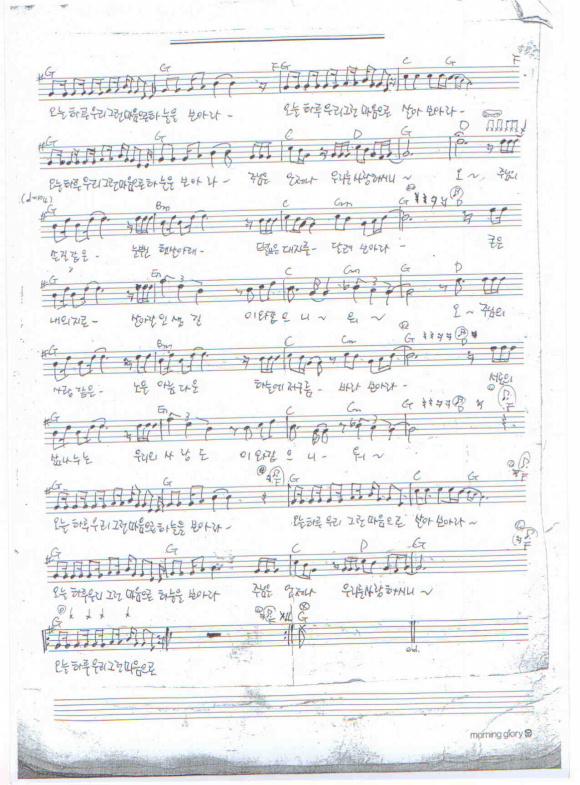 G G FG C G F
오늘 하루 우리 그런 마음으로 하늘을 보아라 - 오늘 하루 우리 그런 마음으로 살아 보아라 -
G G C D G D
오늘 하루 우리 그런 마음으로 하늘을 보아 라 - 주님은 언제나 우리를 사랑하시니 ~ 오 ~ 주님의
G Bm C Cm G
손길 같은 - 눈부신 햇살아래 - 드넓은 대지를 - 달려 보아라 -
G Em C Cm G D
내 의지로 - 살아갈 인생 길 이와 같 으 니 ~ 워 ~ 오 ~ 주님의
G Bm C Cm G
사랑 같은 - 하늘에 저 구름 - 바라 보아라 -
G Em C Cm G
우리의 사 랑 도 이 와 같 으 니 - 워 ~
G G C G
오늘 하루 우리 그런 마음으로 하늘을 보아라 - 오늘 하루 우리 그런 마음으로 살아 보아라 ~
G G C D G
오늘 하루 우리 그런 마음으로 하늘을 보아라 주님은 언제나 우리를 사랑하시니 ~
G G
오늘 하루 우리 그런 마음으로
morning glory